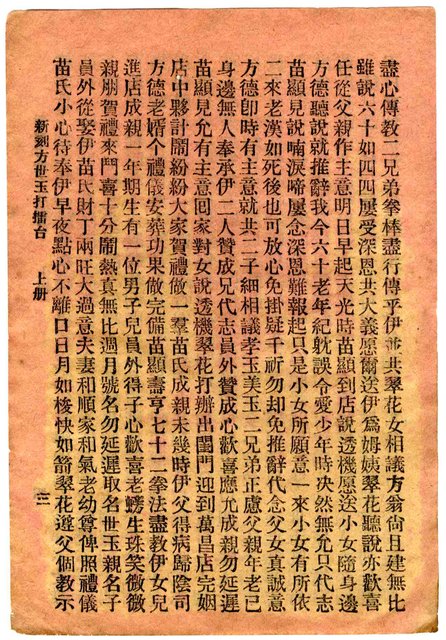 盡心傳教二兄弟拳棒盡行傳乎伊並共翠花女相議方翁尙且建無比
雖說六十如四四屢受深恩共大義愿爾送伊爲姆姨翠花聽說亦歡喜
任從父親作主意明日早起天光時苗顯到店說透機愿送小女隨身邊
方德聽說就推辭我今六十老年紀躭誤令愛少年時决然無允只代志
苗顯見說喃淚啼屢念深恩難報起只是小女所願意一來小女有所依
二來老漢如死後也可放心免掛疑千祈勿却免推辭代念父女真誠意
方德卽時有主意就共二子細相議孝玉美玉二兄弟正慮父親年老已
身邊無人奉承伊二人贊成兄代志員外贊成心歡喜應尤成親勿延遲
苗顯見允有主意回家對女說透機翠花打辦出閨門迎到萬昌店完姻
店中夥計鬧紛紛大家賀禮做一羣苗氏成親未幾時伊父得病歸陰司
方德老婿个禮儀安葬功果做完備苗顯壽亨七十二拳法盡教伊女兒
進店成親一年期生有一位男子兒員外得子心歡喜老蠳生珠笑微微
親朋賀禮來鬥喜十分鬧熱真無比週月號名勿延遲取名世玉親名子
員外從娶伊苗氏財丁兩旺大過意夫妻和順家和氣老幼尊俾照禮儀
苗氏小心待奉伊早夜點心不離口日月如梭快如箭翠花遵父個教示
新刻方世玉打擂台 上册 三